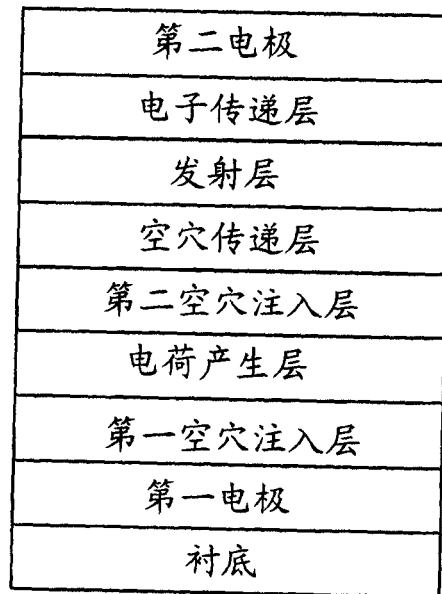 第二电极
电子传递层
发射层
空穴传递层
第二空穴注入层
电荷产生层
第一空穴注入层
第一电极
衬底